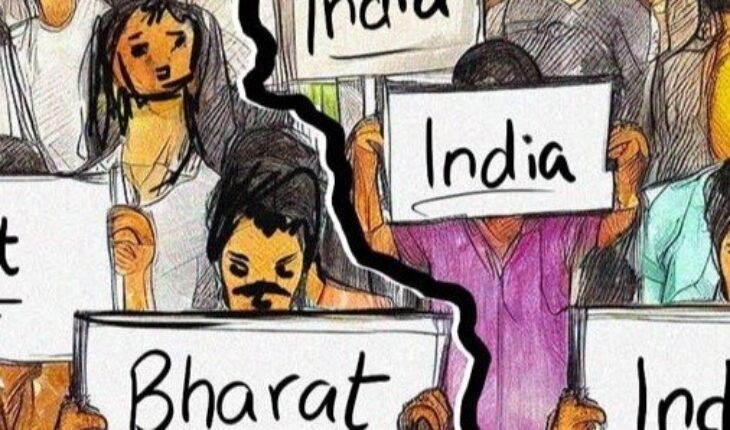 India
India
Bharat